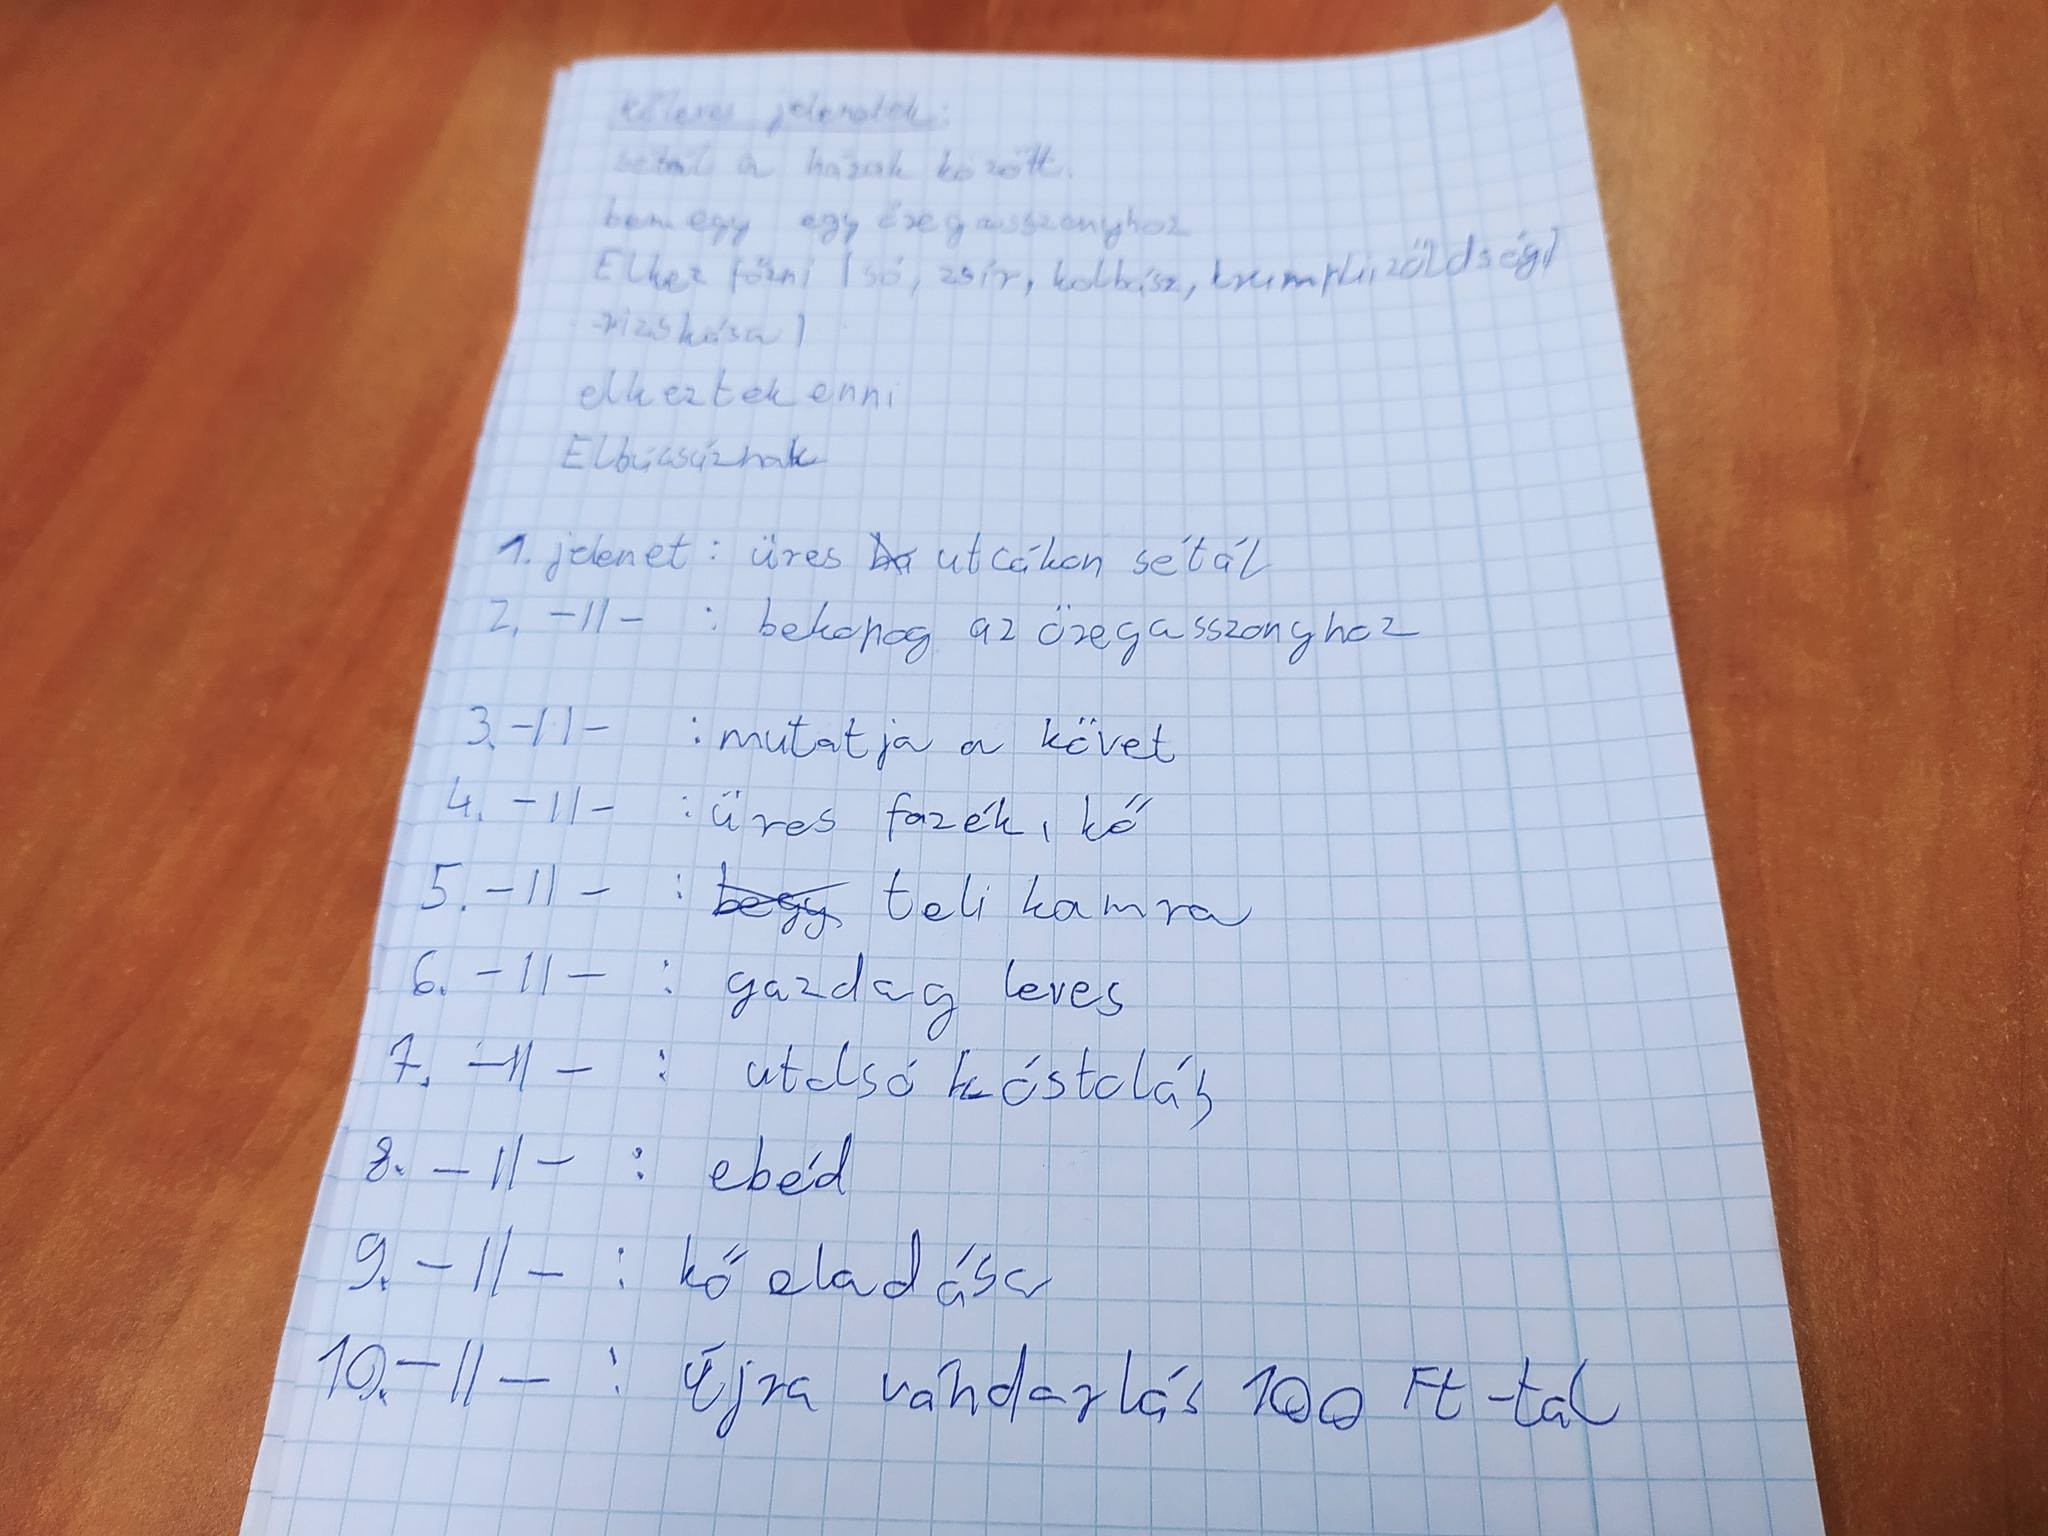 Kőleves jelenetek:
sétál a házak között.
bemegy egy öregasszonyhoz
Elkez főzni (só, zsír, kolbász, krumpli, zöldség)
rizskása)
elkeztek enni
Elbúcsúznak
1. jelenet: üres utcákon sétál
2. -||- : bekopog az öregasszonyhoz
3. -||- : mutatja a követ
4. -||- : üres fazék, kő
5. -||- : teli kamra
6. -||- : gazdag leves
7. -||- : utolsó kóstolás
8. -||- : ebéd
9. -||- : kő eladása
10. -||- : Újra vándorlás 100 Ft-tal